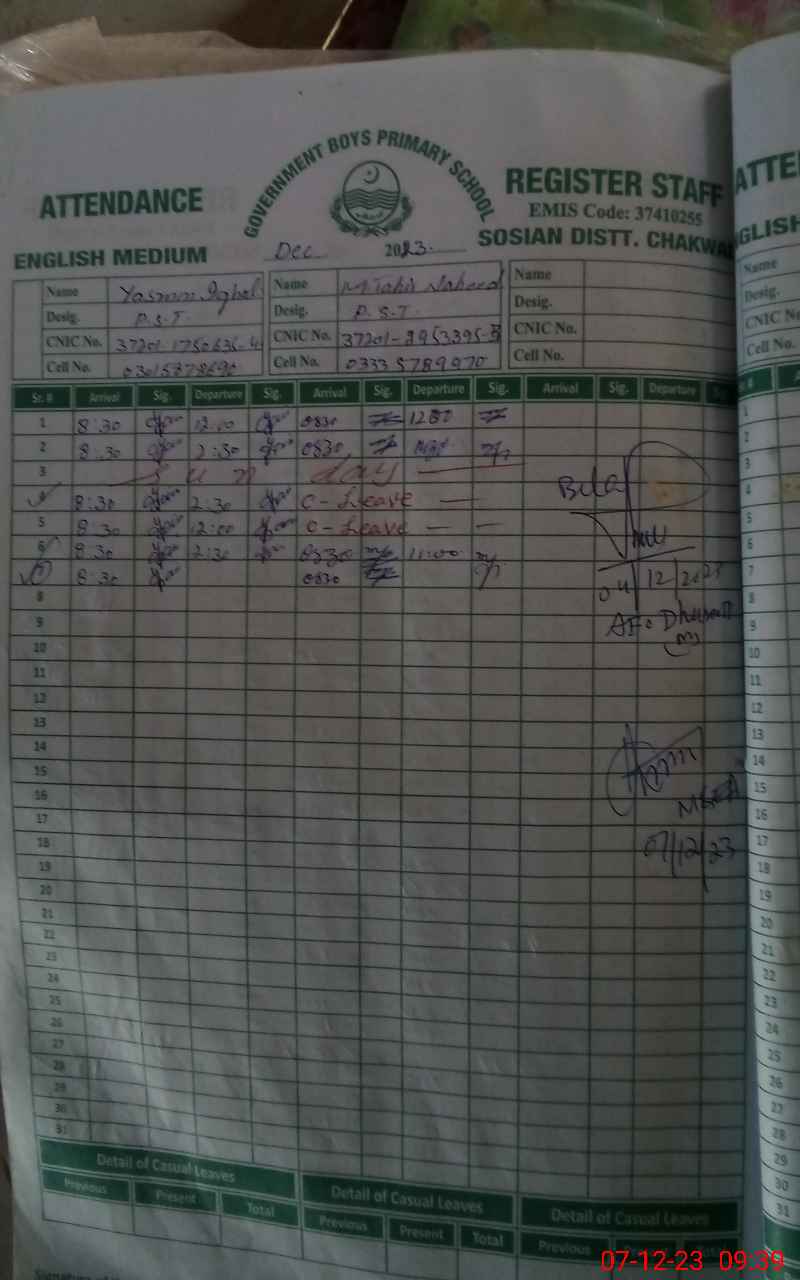 GOVERNMENT BOYS PRIMARY SCHOOL
ATTENDANCE REGISTER STAFF
EMIS Code: 37410255
ENGLISH MEDIUM Dec 2023. SOSIAN DISTT. CHAKWAL
Name Yasmin Iqbal Name M. Tahir Naheed Name
Desig. P.S.T. Desig. P.S.T. Desig.
CNIC No. CNIC No. CNIC No.
Cell No. Cell No. 0333 5789970 Cell No.
Sr. # Arrival Sig. Departure Sig. Arrival Sig. Departure Sig. Arrival Sig. Departure
1 8:30 12:00 0830 1200
2 8:30 2:30 0830
3 Sun day
4 8:30 2:30 C-Leave
5 8:30 12:00 C-Leave
6 8:30 2:30 0830 11:00
7 8:30 0830
04/12/2023
8
9
10
11
12
13
14
15
16
17
07/12/23
18
19
20
21
22
23
24
25
26
27
28
29
30
31
Detail of Casual Leaves Detail of Casual Leaves Detail of Casual Leaves
Previous Present Total Previous Present Total Previous
ATTE
Name
Desig.
CNIC No.
Cell No.
1
2
3
4
5
6
7
8
9
10
11
12
13
14
15
16
17
18
19
20
21
22
23
24
25
26
27
28
29
30
31
07-12-23 09:39